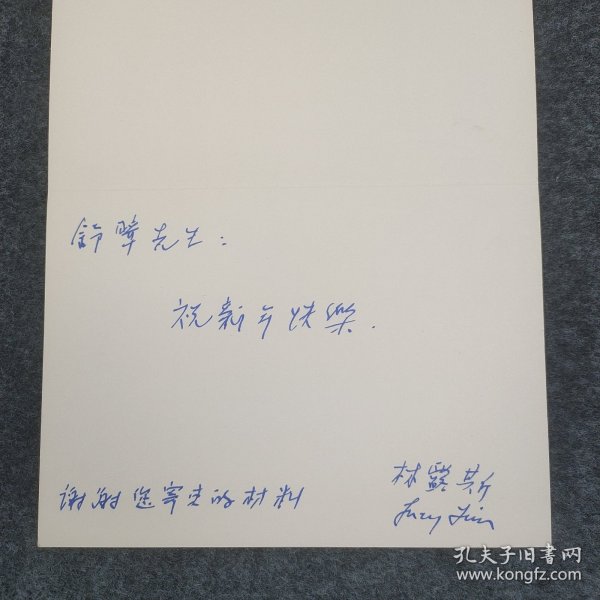 舒暲先生：
祝新年快樂.
谢谢您寄来的材料
林露斯
Lucy Lim
孔夫子旧书网
www.kongfz.com